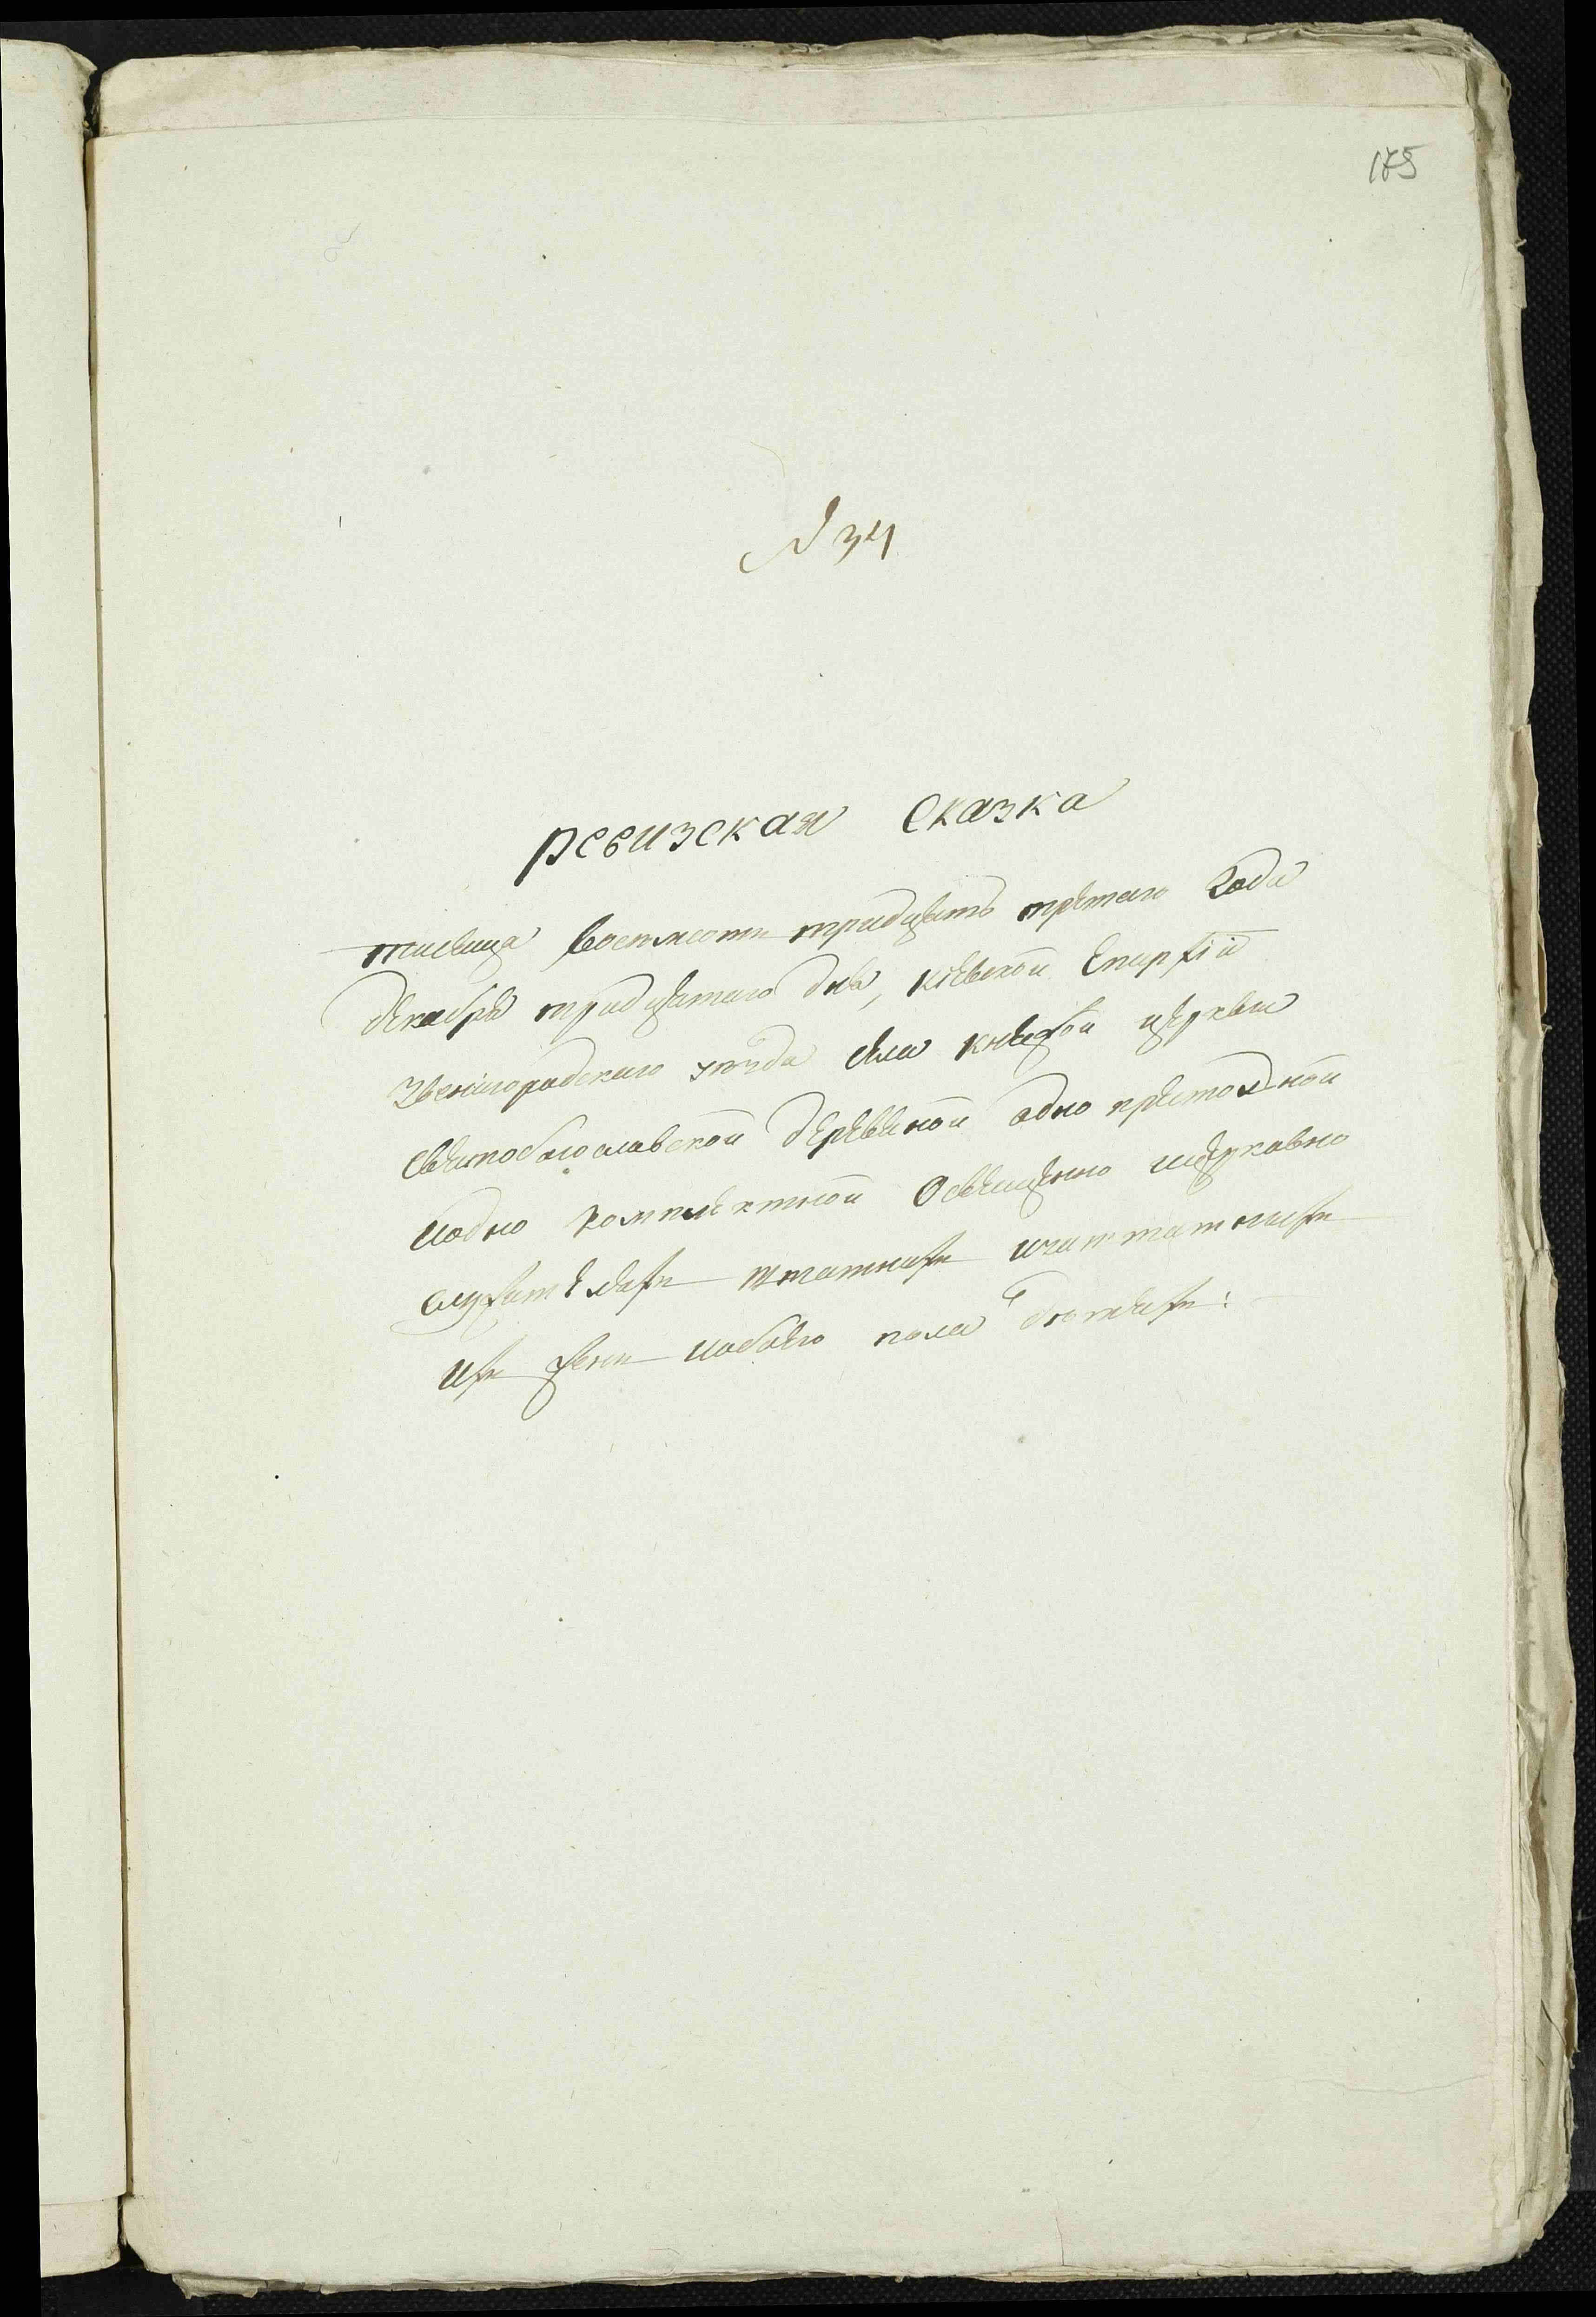 175
№ 34
Ревизская Сказка
тисяща восемсотъ тридцять третаго Года
декабря тридцятаго дня, кіевской Епархіи
Звенигородскаго уезда села княжой церкви
Святобогославской деревяной одно престолной
иодно комплектной Освященно ицерковно
служителяхъ штатнихъ изаштатнихъ
ихъ женъ иобоего пола детяхъ: